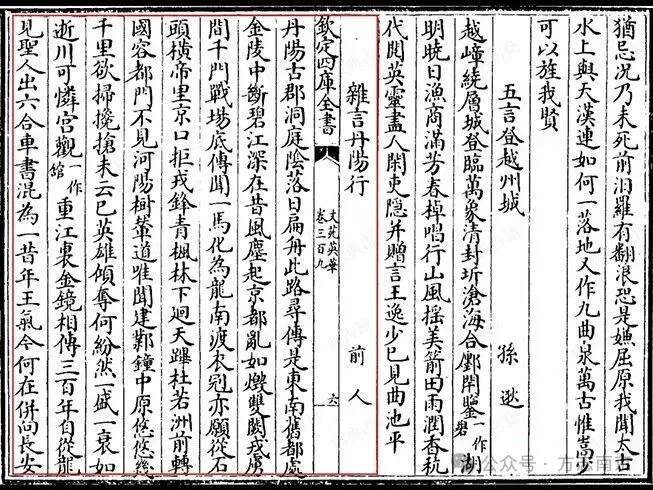 猶忌況乃未死前汨羅有翻浪恐是嫌屈原我聞太古
水上與天漢連如何一落地又作九曲泉萬古惟嵩少
可以旌我賢
五言登越州城　孫逖
越嶂繞層城登臨萬象清封圻滄海合鄽閈鑒一作碧湖
明曉日漁商滿芳春棹唱行山風搖美箭田雨潤香秔
代閱英靈盡人閑吏隱并贈言王逸少已見曲池平
雜言丹陽行　前人
欽定四庫全書　文苑英華　卷三百九　六
丹陽古郡洞庭陰落日扁舟此路尋傳是東南舊都處
金陵中斷碧江深在昔風塵起京都亂如燬雙闕戎虜
間千門戰場底傳聞一馬化為龍南渡衣冠亦願從石
頭橫帝里京口拒戎鋒青楓林下迴天蹕杜若洲前轉
國容都門不見河陽樹輦道唯聞建鄴鐘中原悠悠幾
千里欲掃攙搶未云已英雄傾奪何紛然一盛一衰如
逝川可憐宮觀一作館重江裏金鏡相傳三百年自從龍
見聖人出六合車書混為一昔年王氣今何在併向長安
公众号 · 方志南